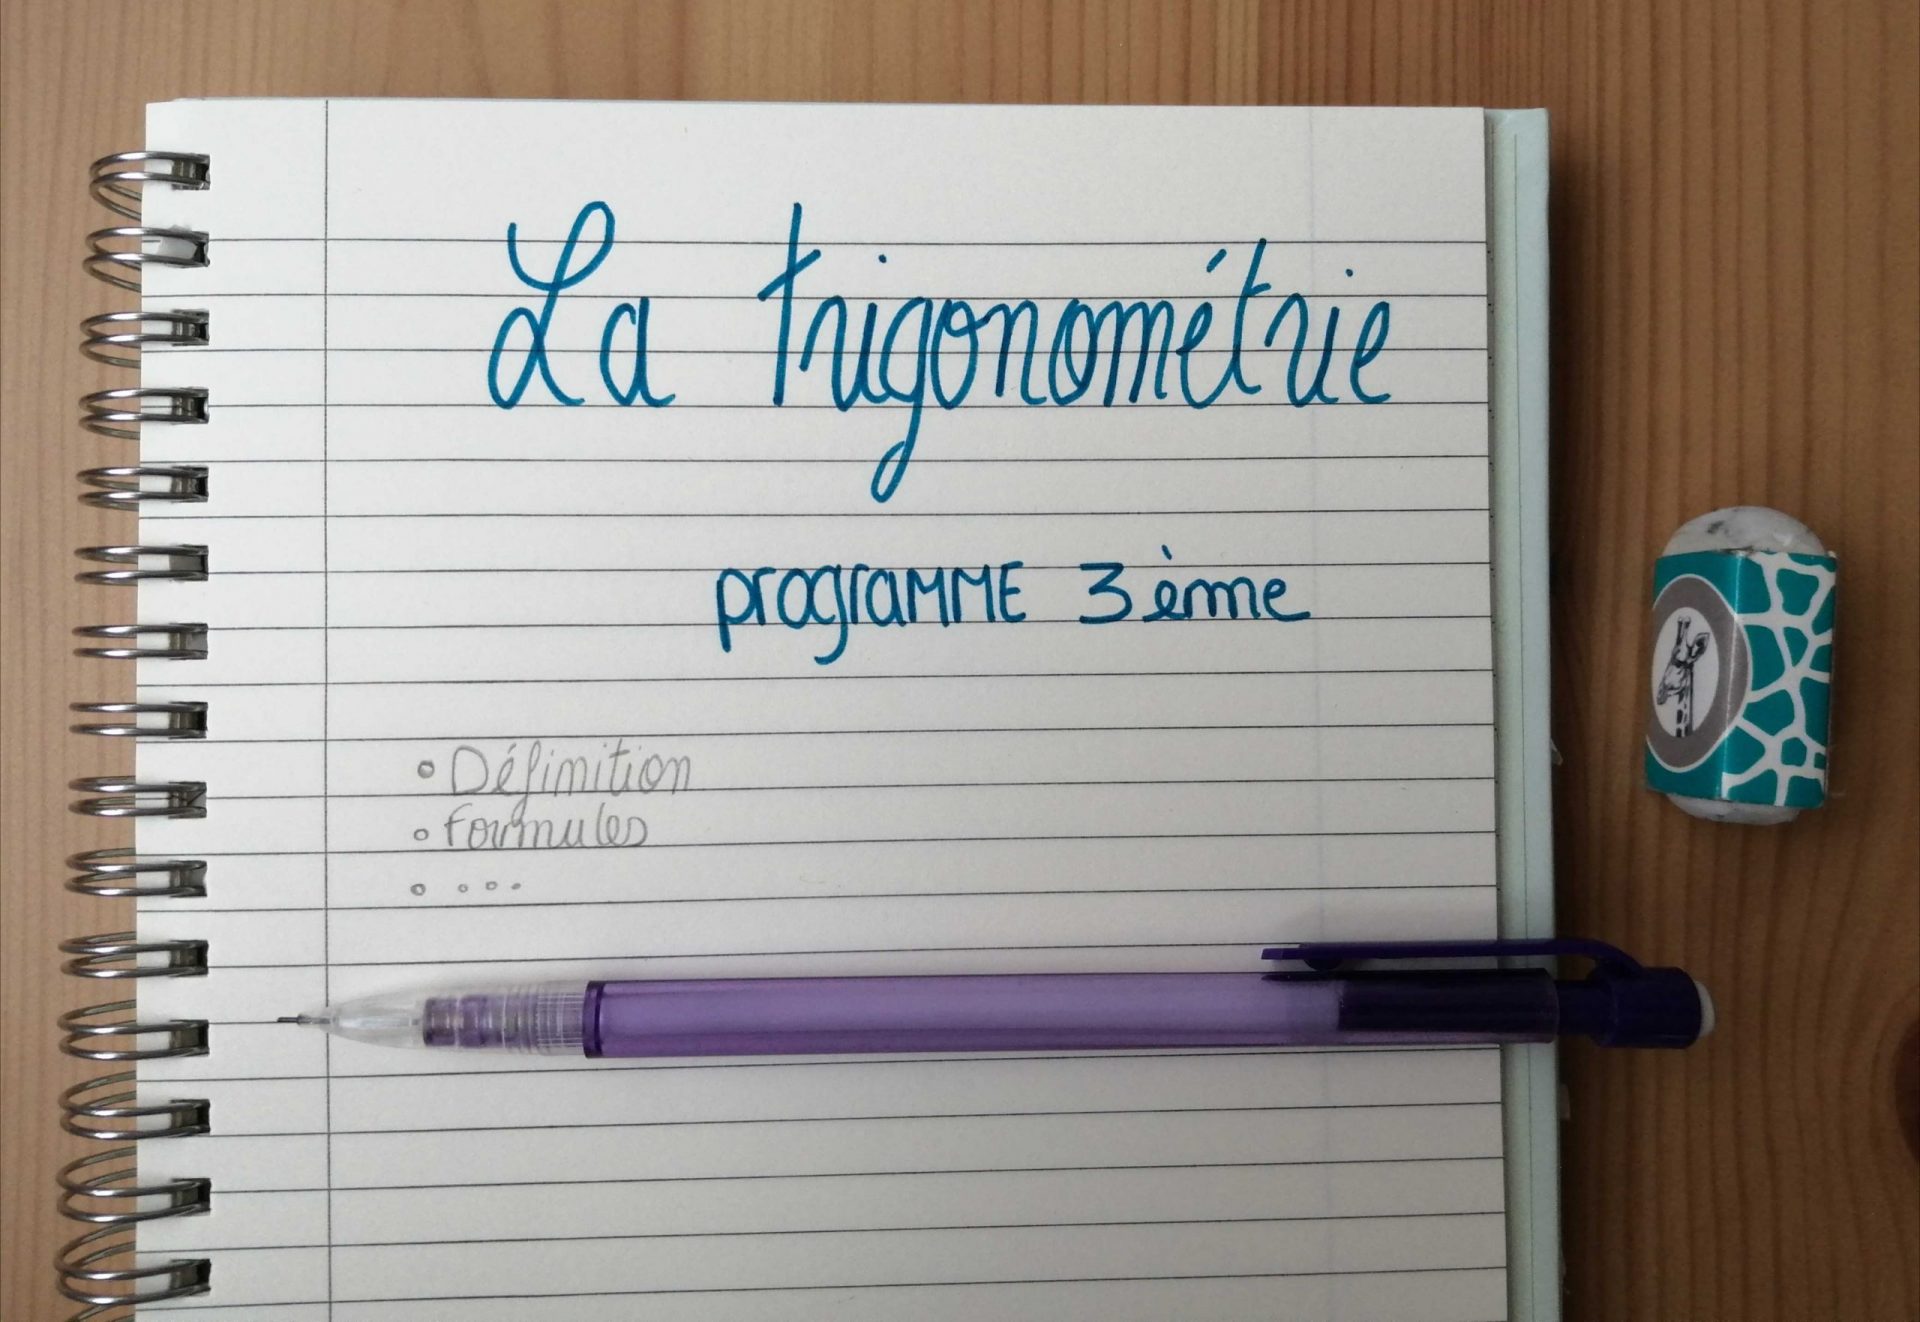 La trigonométrie
programme 3ème
• Définition
• Formules
• ...